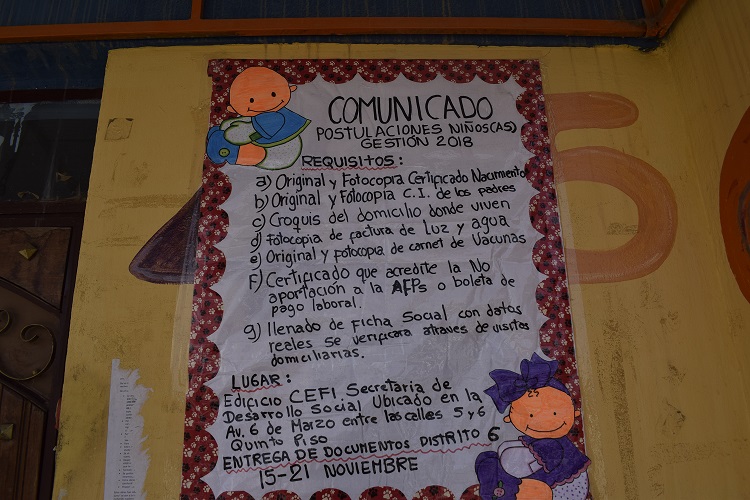 COMUNICADO
POSTULACIONES NIÑOS(AS)
GESTIÓN 2018
REQUISITOS:
a) Original y Fotocopia Certificado Nacimiento
b) Original y Fotocopia C.I. de los padres
c) Croquis del domicilio donde viven
d) Fotocopia de factura de Luz y agua
e) Original y fotocopia de carnet de Vacunas
F) Certificado que acredite la No
aportación a la AFPs o boleta de
pago laboral.
g) llenado de ficha Social con datos
reales se verificara atraves de visitas
domiciliarias.
LUGAR:
EDICICIO CEFI Secretaria de
Desarrollo Social Ubicado en la
Av. 6 de Marzo entre las calles 5 y 6
Quinto Piso
ENTREGA DE DOCUMENTOS DISTRITO 6
15-21 NOVIEMBRE